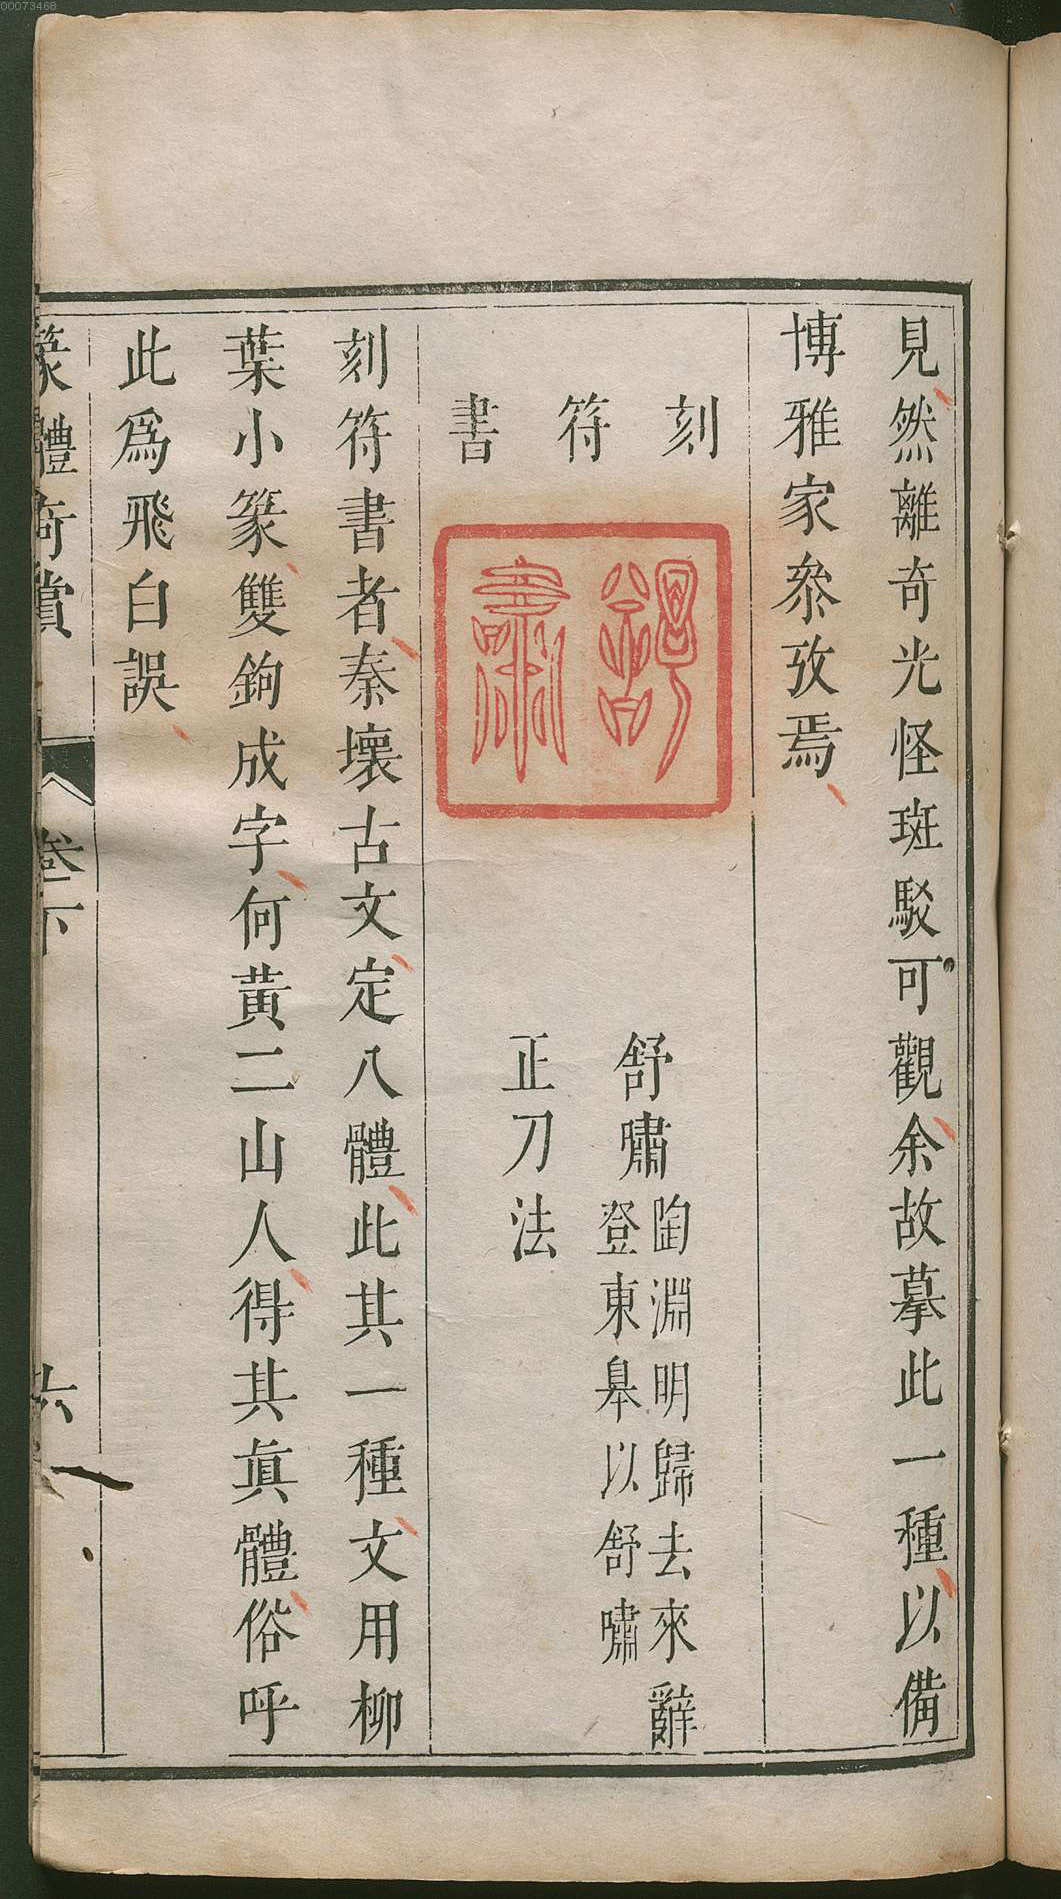 00073468
見然離奇光怪斑駁可觀余故摹此一種以備
博雅家叅攷焉
刻符書
舒嘯
陶淵明歸去來辭
登東皋以舒嘯
正刀法
刻符書者秦壞古文定八體此其一種文用柳
葉小篆雙鉤成字何黃二山人得其眞體俗呼
此爲飛白誤
篆體奇賞
卷下
六